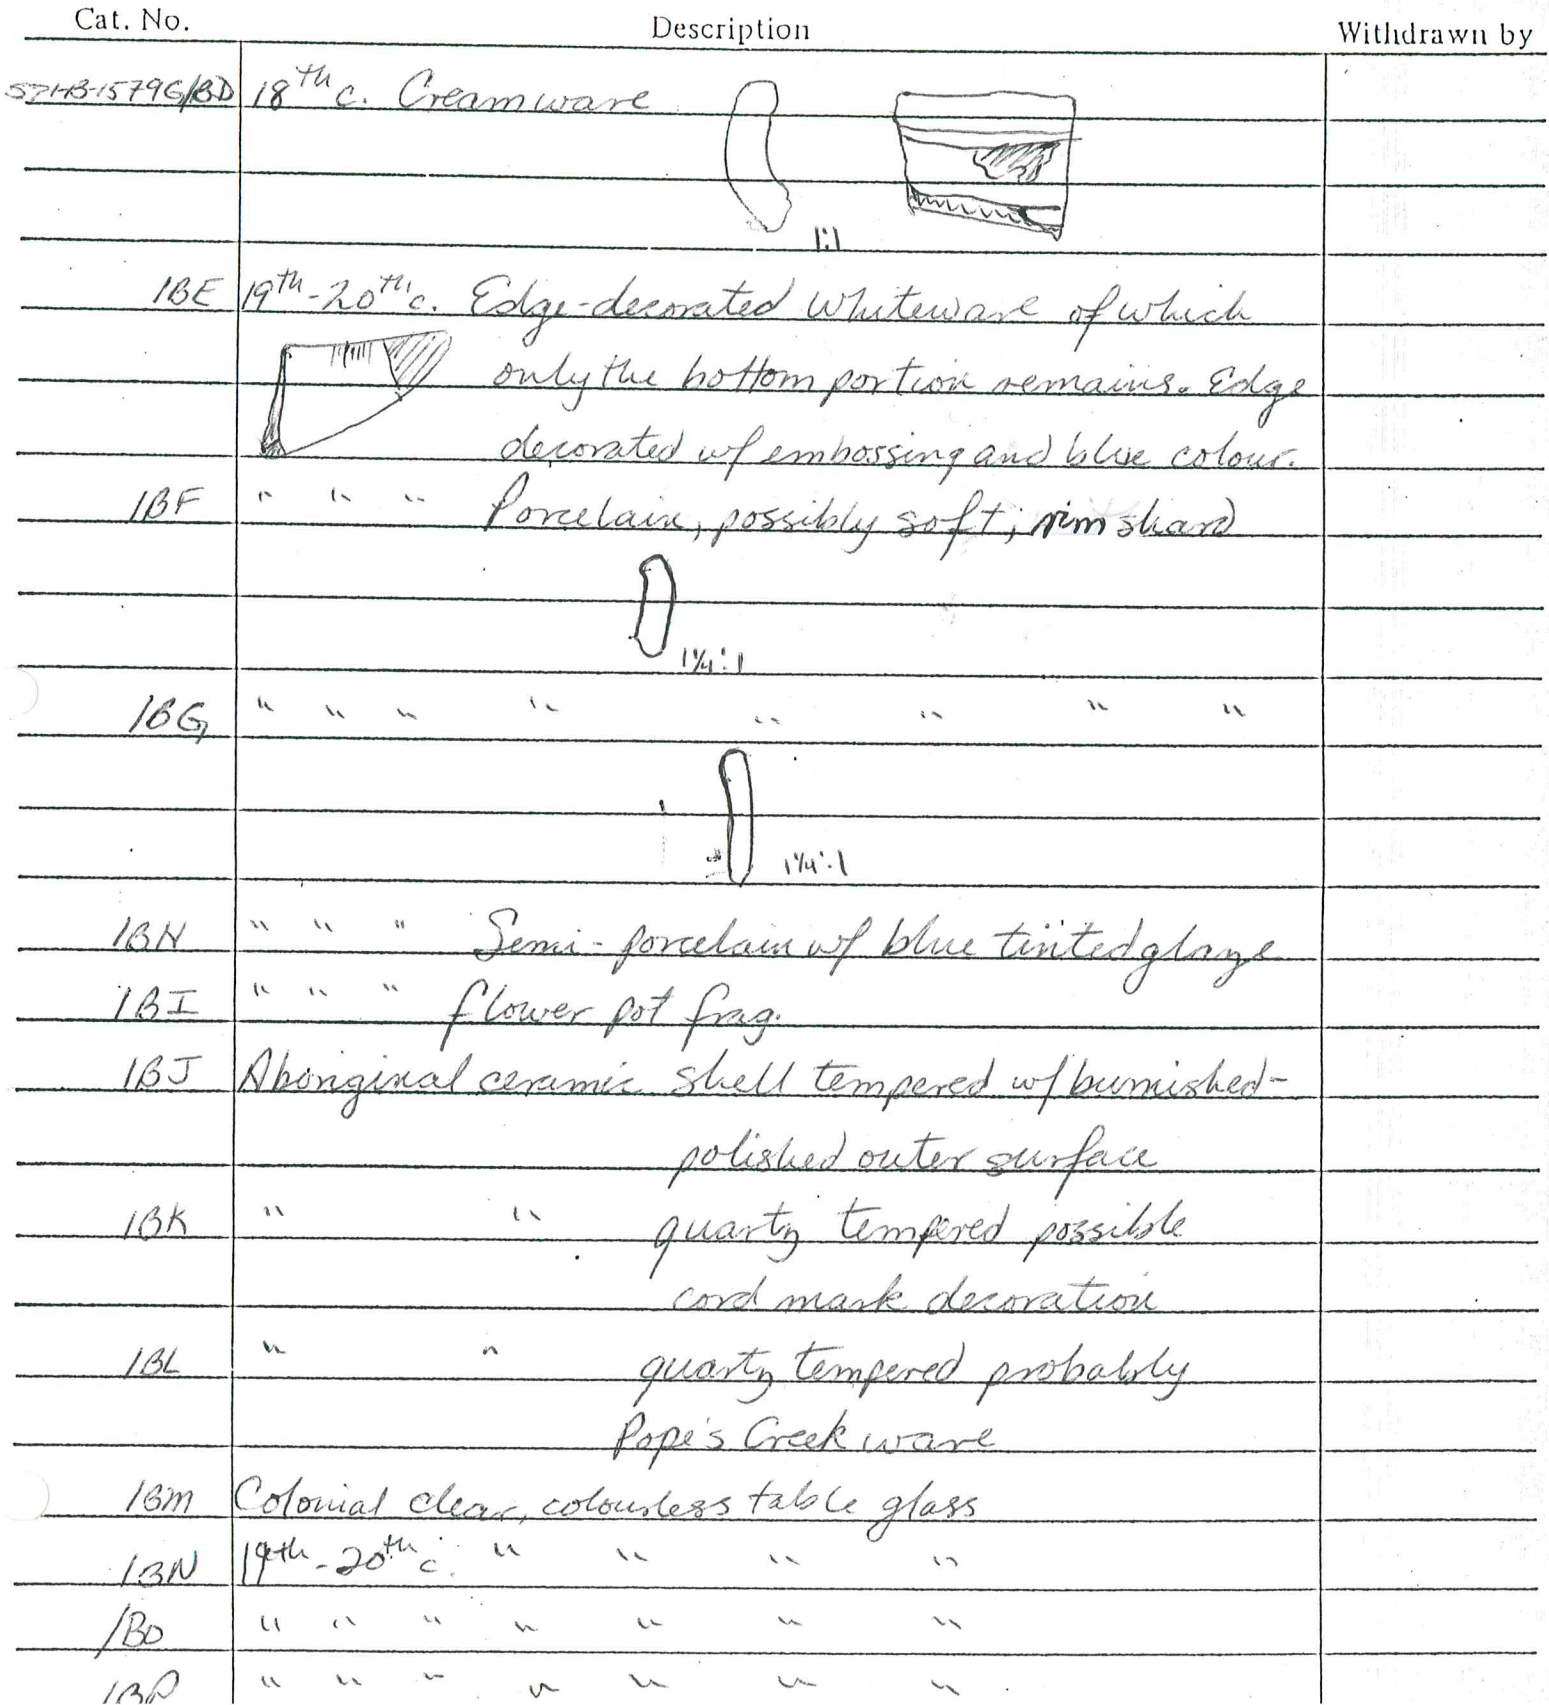 Cat. No. Description Withdrawn by
/BD 18th c. Creamware
1:1
/BE 19th-20th c. Edge-decorated Whiteware of which
only the bottom portion remains. Edge
decorated w/ embossing and blue colour.
/BF " " " Porcelain, possibly soft; rim shard
1¼:1
/BG " " " " " " " "
1¼:1
/BH " " " Semi-porcelain w/ blue tinted glaze
/BI " " " flower pot frag.
/BJ Aboriginal ceramic shell tempered w/ burnished-
polished outer surface
/BK " " quartz tempered possible
cord mark decoration
/BL " " quartz tempered probably
Pope's Creek ware
/BM Colonial clear, colourless table glass
/BN 19th-20th c. " " " "
/BO " " " " " " "
/BP " " " " " " "